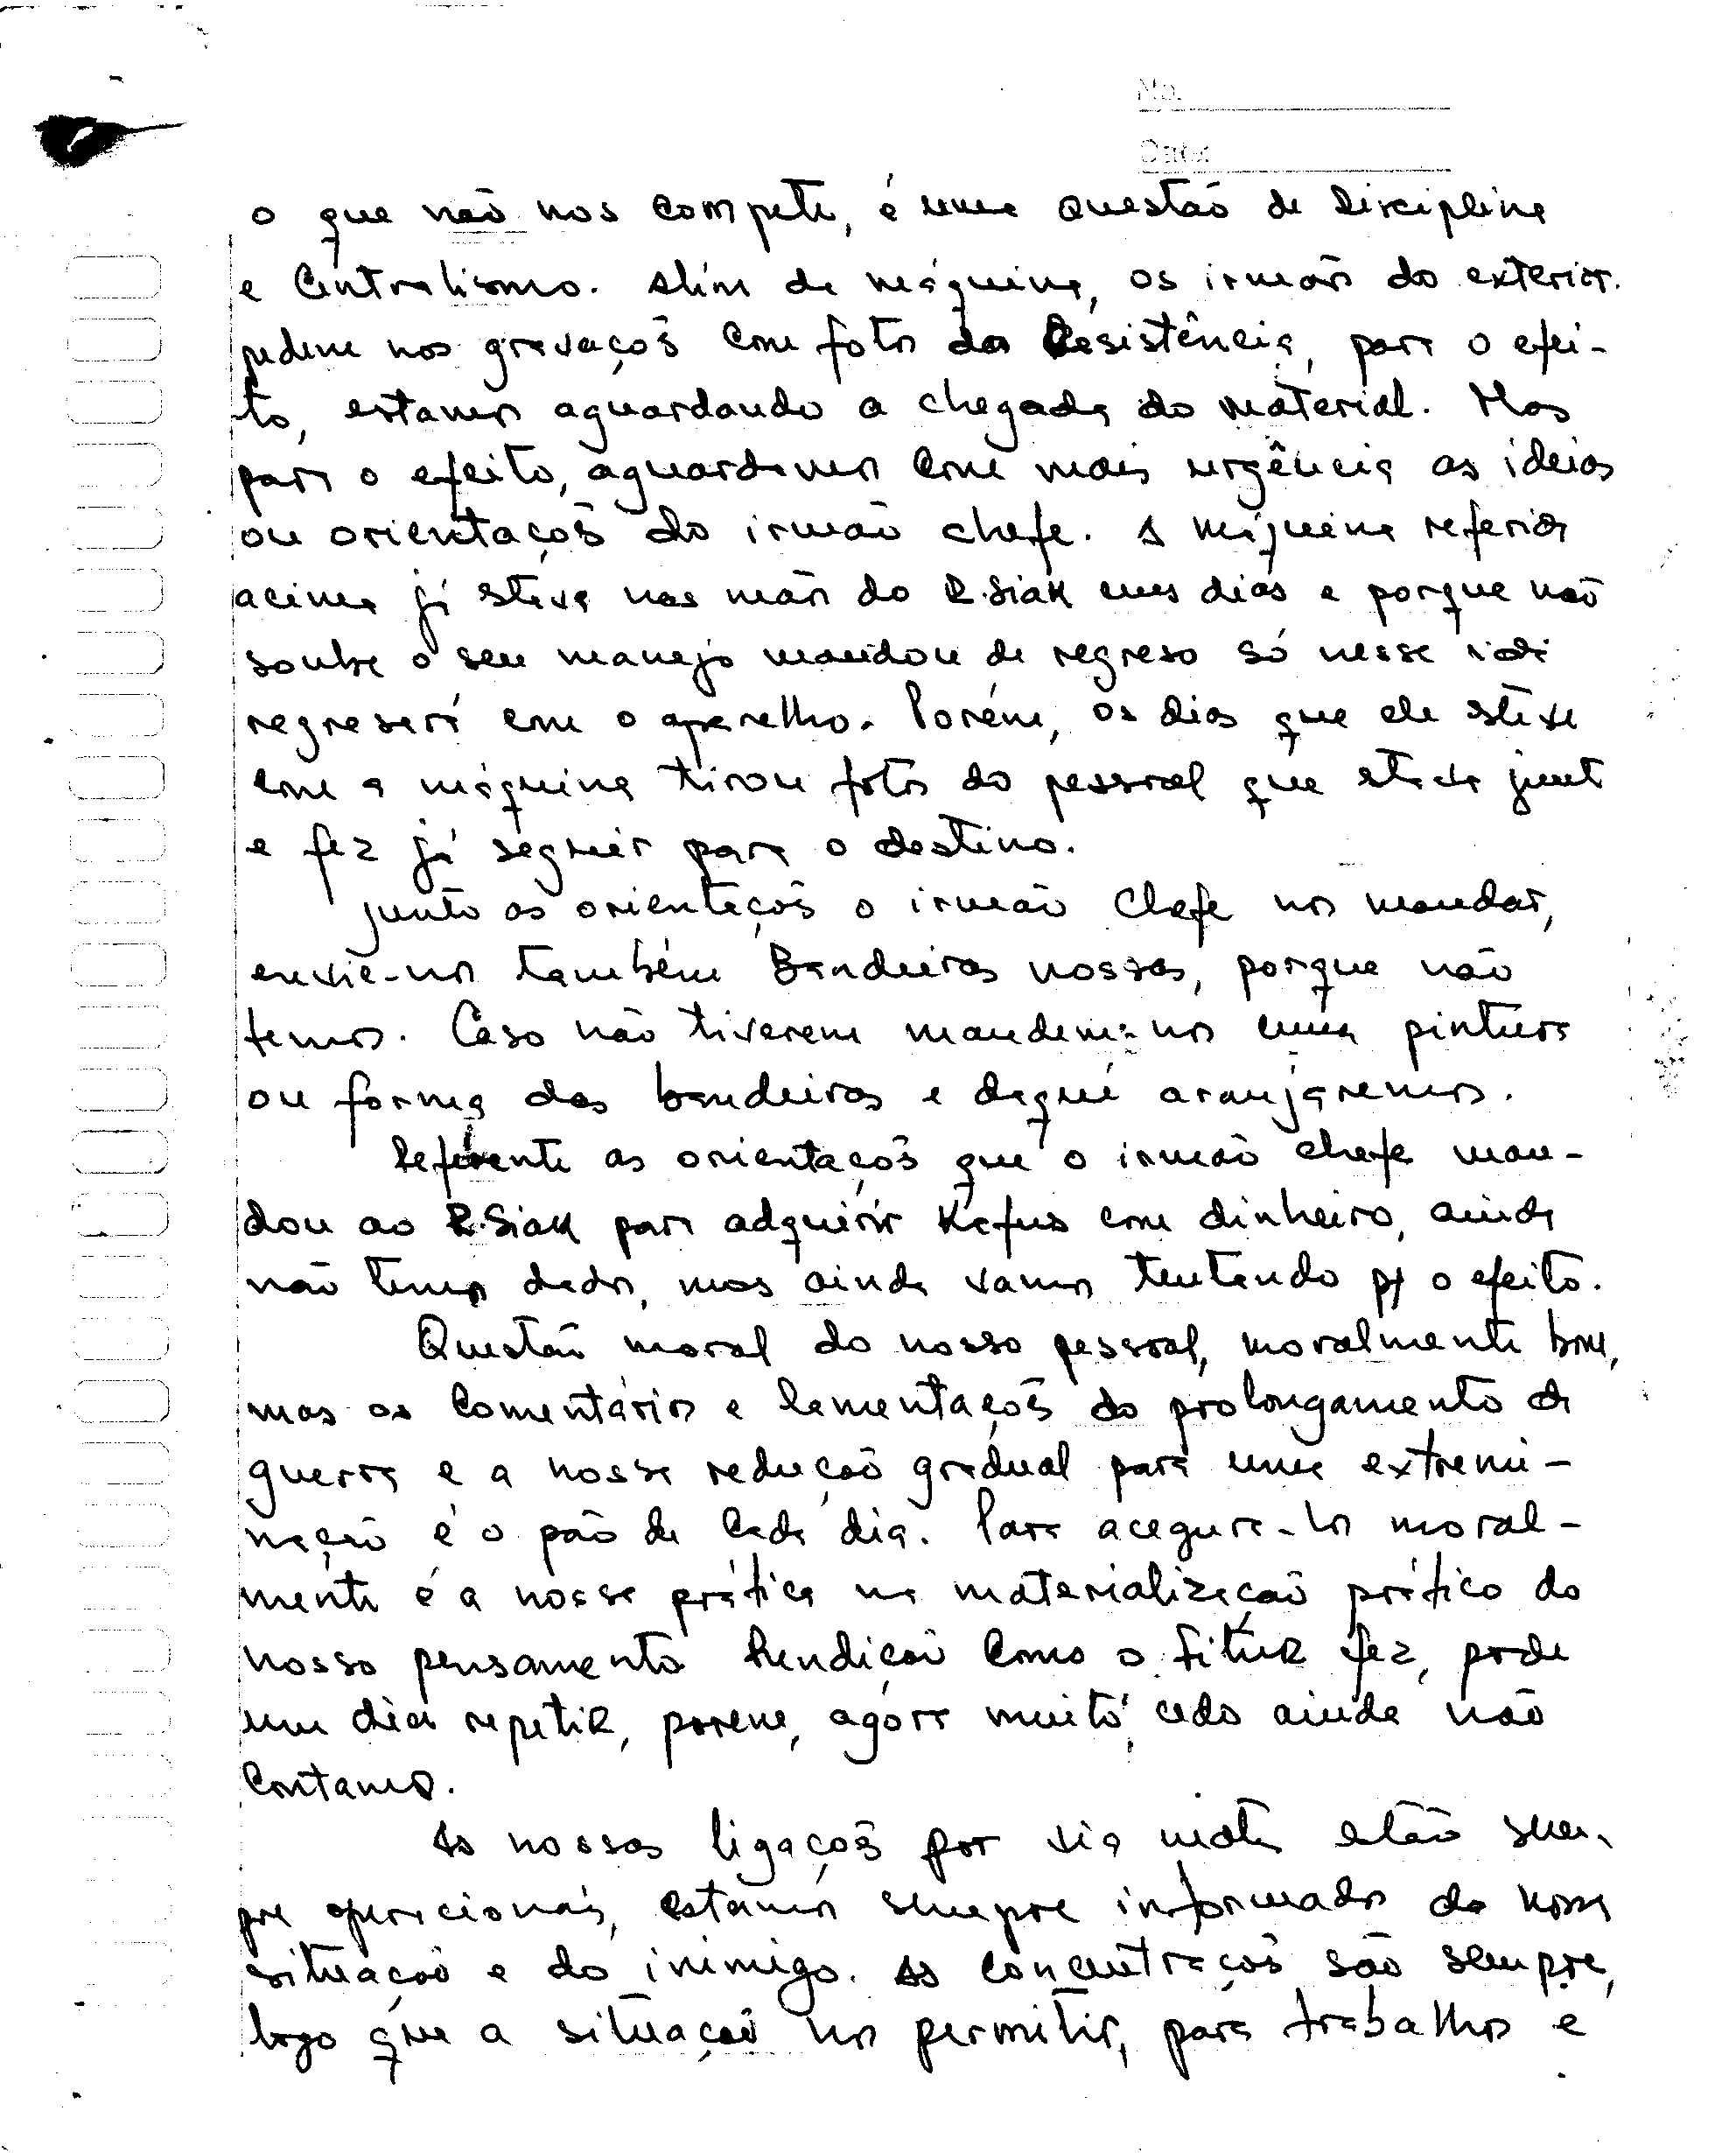 No.
Date
o que não nos compete, é uma questão de Disciplina
e Centralismo. Além de máquina, os irmãos do exterior.
pedem nos gravaçoẽs com fotos da Resistência, para o efei-
to, estamos aguardando a chegada do material. Mas
para o efeito, aguardamos com mais urgência as ideias
ou orientaçoẽs do irmão chefe. A máquina referida
acima já steve nas mãos do R.Siak uns dias e porque não
soube o seu manejo mandou de regreso só nesse
regresará com o aparelho. Porém, os dias que ele steve
com a máquina tirou fotos do pessoal que stava junto
e fez já seguir para o destino.
Junto as orientaçoẽs o irmão Chefe nos mandar,
envie-nos também Bandeiras nossas, porque não
temos. Caso não tiverem mandem-nos uma pintura
ou forma das bandeiras e daqui aranjaremos.
Referente as orientaçoẽs que o irmão chefe man-
dou ao R.Siak para adquirir Kafuas com dinheiro, ainda
não temos dados, mas ainda vamos tentando p/ o efeito.
Questão moral do nosso pessoal, moralmente bom,
mas os comentários e lamentaçoẽs do prolongamento da
guerra e a nossa redução gradual para uma extremi-
nação é o pão de cada dia. Para acegura-los moral-
mente é a nossa prática na materialização prático do
nosso pensamento Rendição como o Fitur fez, pode
um dia repetir, porem, agora muito cedo ainda não
contamos.
As nossas ligaçoẽs por via mata estão sem-
pre opericionais, estamos sempre informados da nossa
situação e do inimigo. As concentraçoẽs são sempre,
logo que a situação nos permitir, para trabalhos e